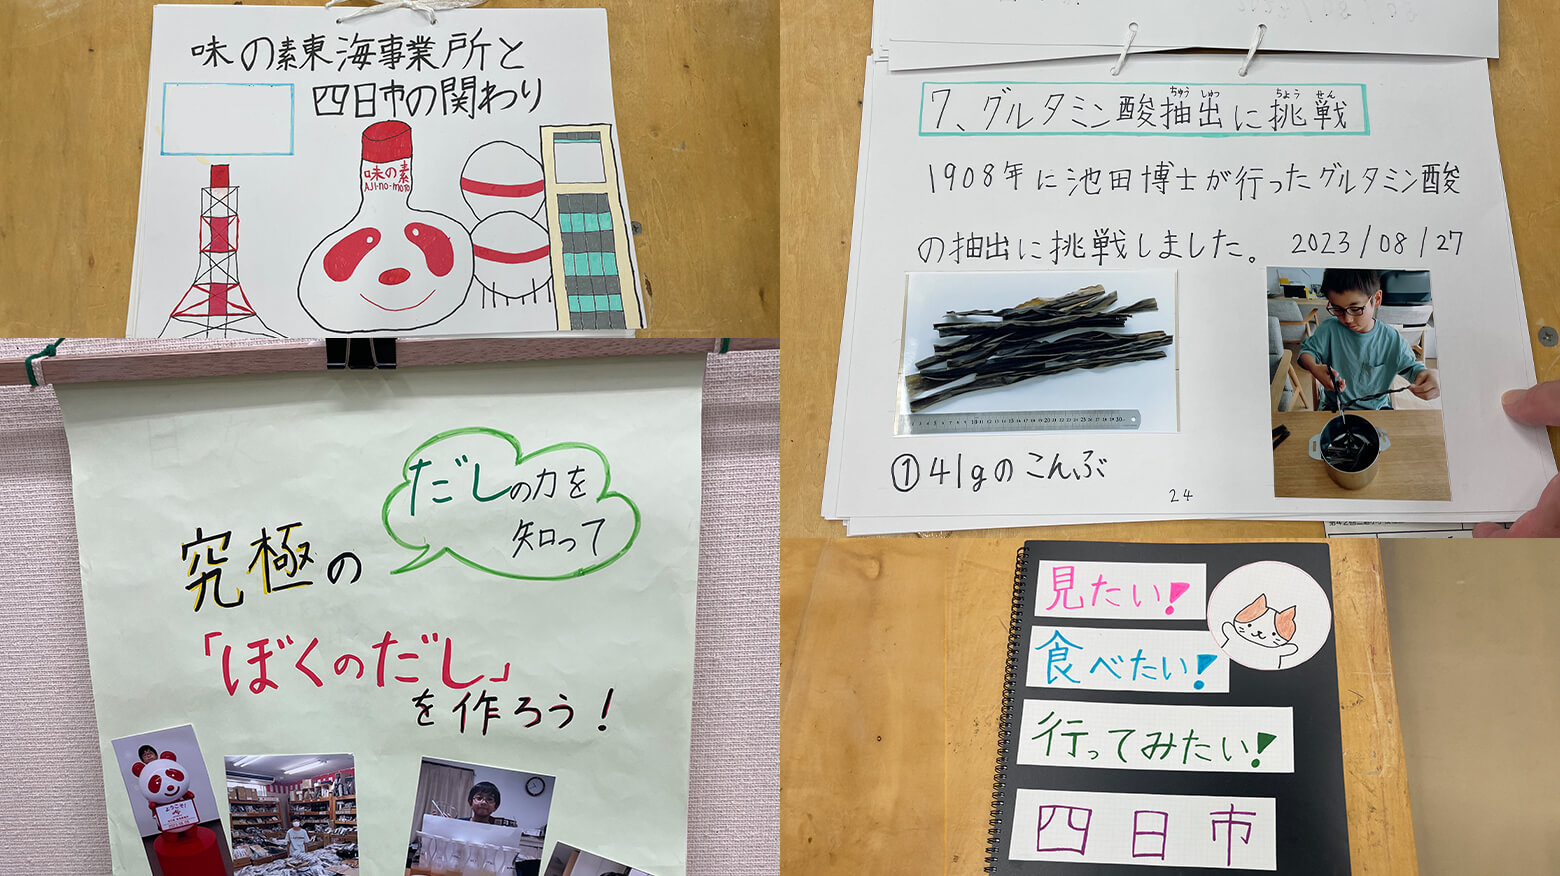 味の素東海事業所と
四日市の関わり
味の素
AJI-no-moto
だしの力を
知って
究極の
「ぼくのだし」
を作ろう！
ようこそ!
ちゅう しゅつ ちょう せん
7、グルタミン酸抽出に挑戦
1908年に池田博士が行ったグルタミン酸
の抽出に挑戦しました。 2023/08/27
①41gのこんぶ
24
見たい!
食べたい!
行ってみたい!
四日市